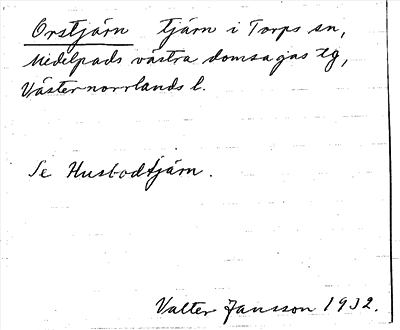 Orstjärn tjärn i Torps sn,
Medelpads västra domsagas tg,
Västernorrlands l.
Se Husbodtjärn.
Valter Jansson 1932.